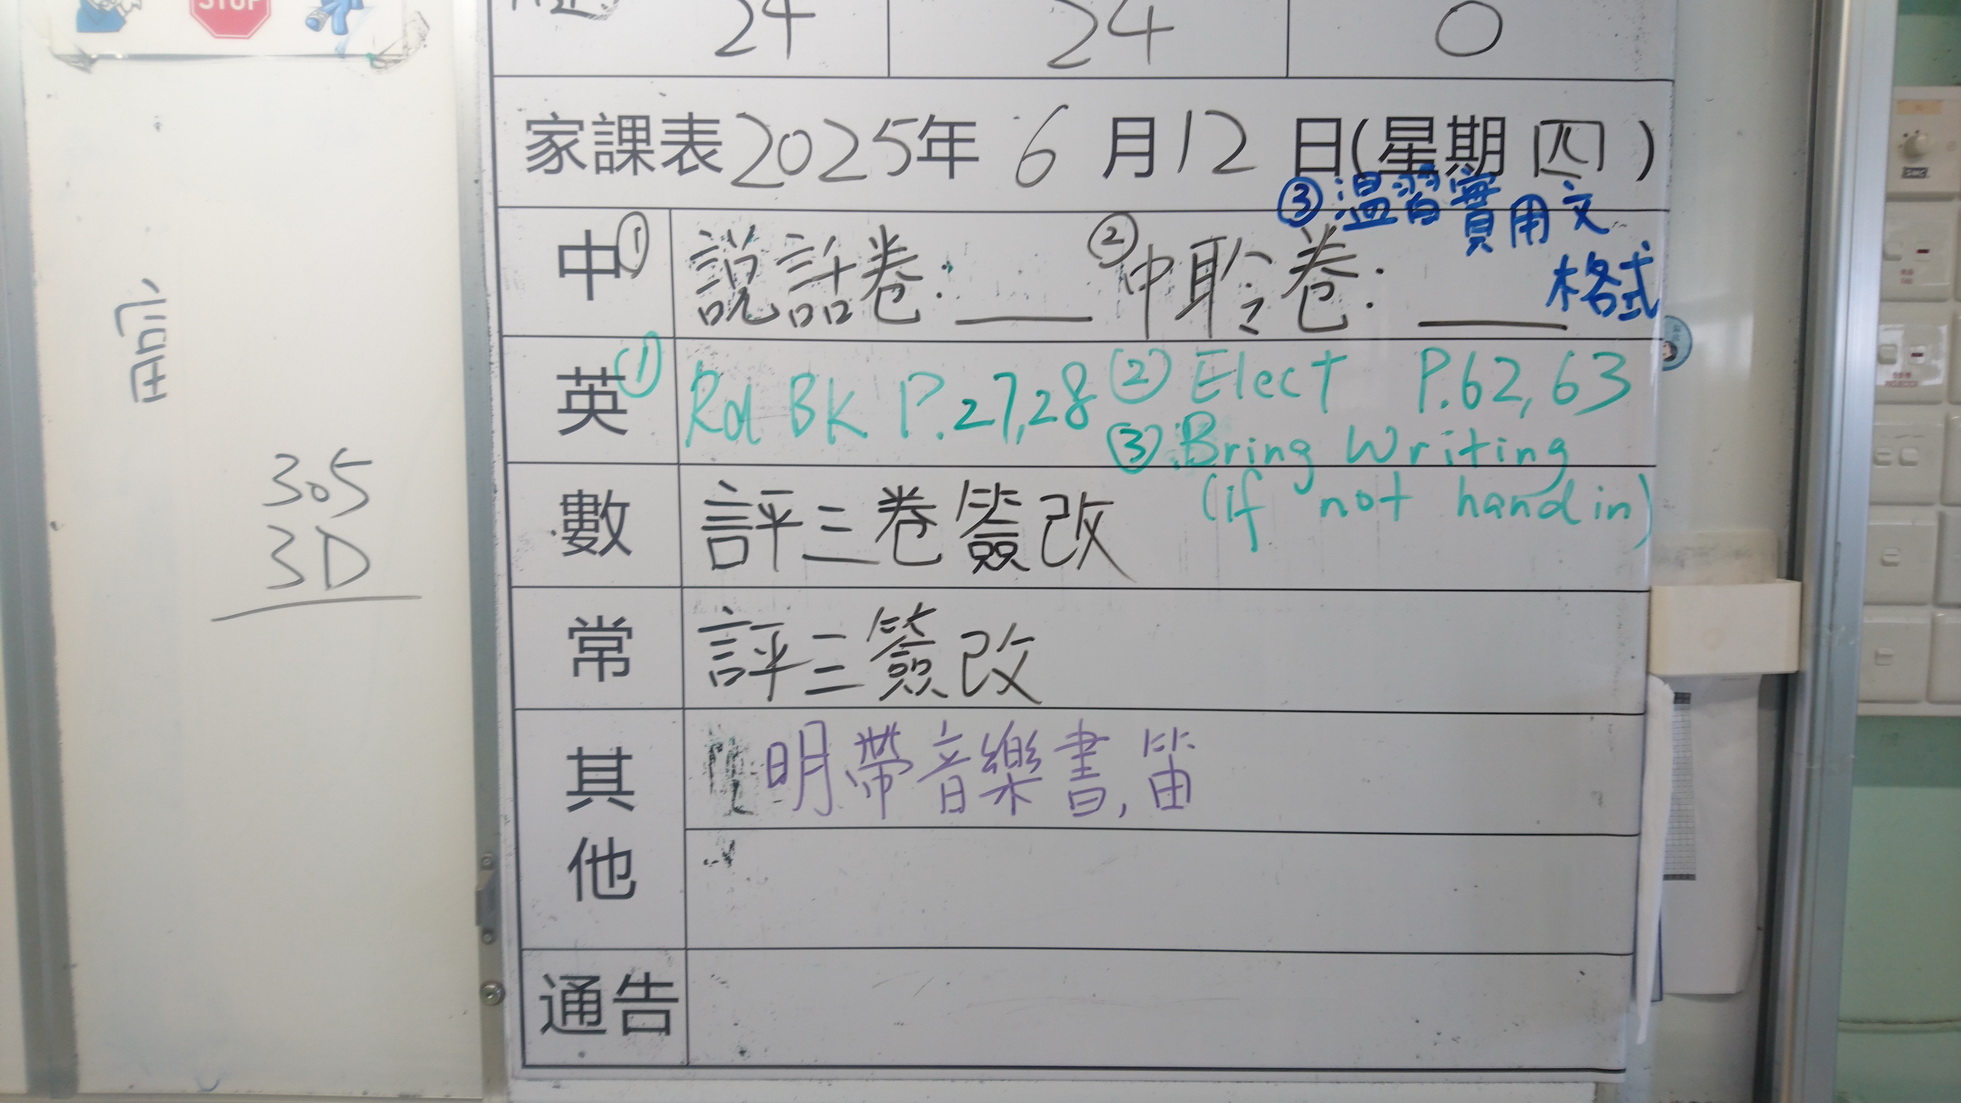 STOP
24 24 0
家課表2025年 6 月 12 日(星期四)
中 ①說話卷:____ ②中聆卷:____ ③溫習實用文
格式
英 ①Rd BK P.27,28 ② Elect P.62,63
③ Bring Writing
(if not hand in)
數 評三卷簽改
常 評三簽改
其他 明帶音樂書,笛
通告
305
3D